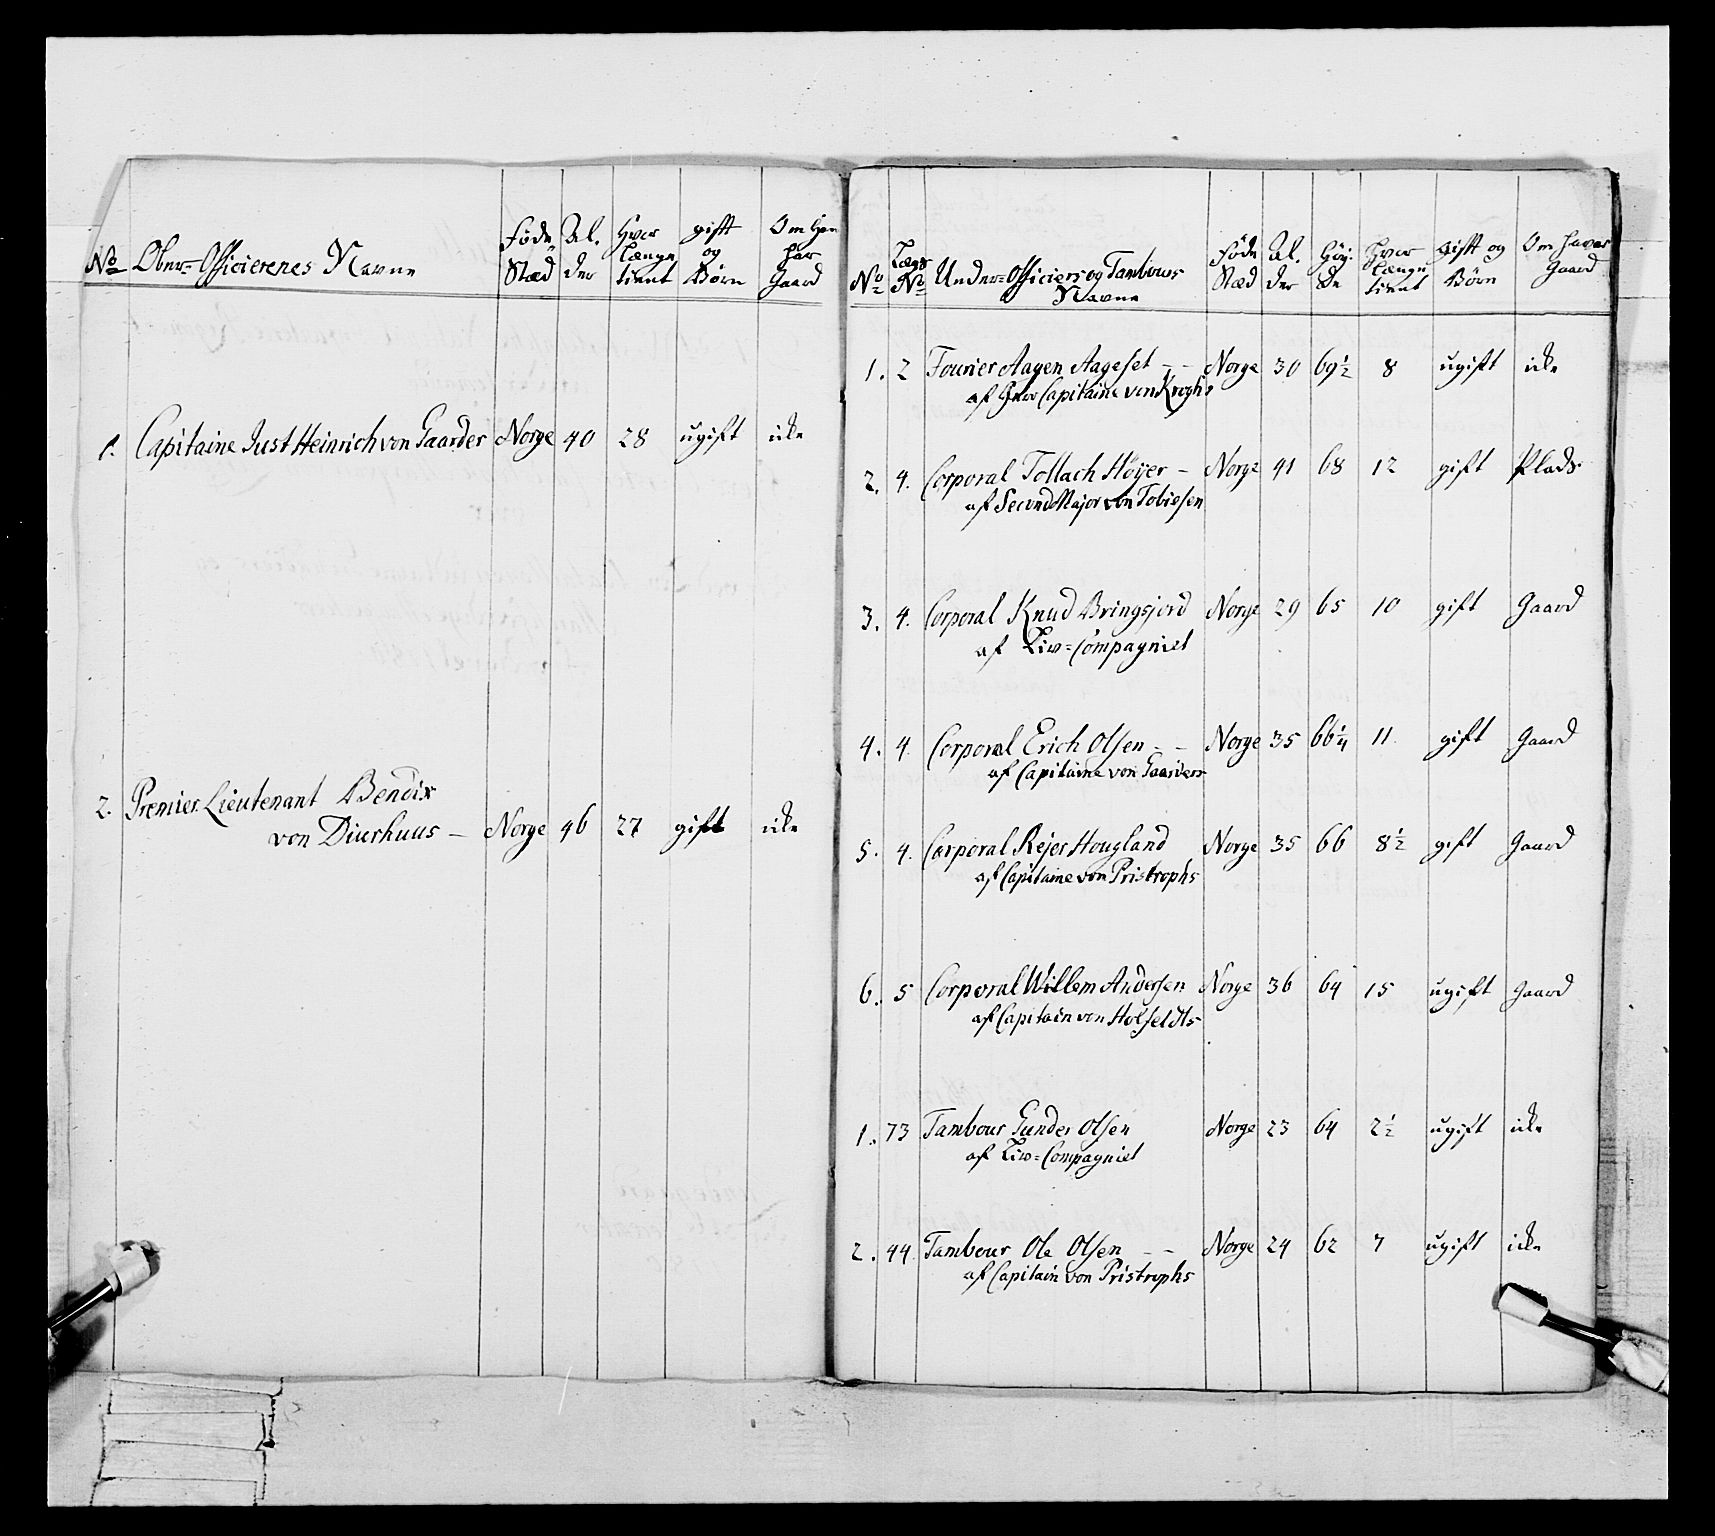 No Ober=Officierenes Navne | Føde Stæd | Al. der | Hvor længe tient | gift og Børn | Om Han har Gaard
1. Capitaine Just Heinrich von Gaarder | Norge | 40 | 28 | ugift | icke
2. Premier Lieutenant Bendix
von Diurhuus — | Norge | 46 | 27 | gift | icke
No | Lægs No | Under=Officiers og Tambours Navne | Føde Stæd | Al. der | Høy. de | Hvor længe tient | gift og Børn | Om haver Gaard
1. | 2 | Fourier Aagen Aageset - - | Norge | 30 | 69½ | 8 | ugift | icke
af Capitaine von Kroghs
2. | 4. | Corporal Tollach Høyer - | Norge | 41 | 68 | 12 | gift | Plads
af Second Major von Tobiesen
3. | 4. | Corporal Knud Bringsjord | Norge | 29 | 65 | 10 | gift | Gaard
af Liv=Compagniet
4. | 4 | Corporal Erich Olsen - - | Norge | 35 | 66¼ | 11 | gift | Gaard
af Capitaine von Gaarders
5. | 4. | Corporal Rejer Hougland | Norge | 35 | 66 | 8½ | gift | Gaard
af Capitaine von Pristrophs
6. | 5 | Corporal Willem Andersen | Norge | 36 | 64 | 15 | ugift | Gaard
af Capitain von Holfeldts
1. | 73 | Tambour Gunder Olsen | Norge | 23 | 64 | 2½ | ugift | icke
af Liv=Compagniet
2. | 44. | Tambour Ole Olsen - - | Norge | 24 | 62 | 7 | ugift | icke
af Capitain von Pristrophs